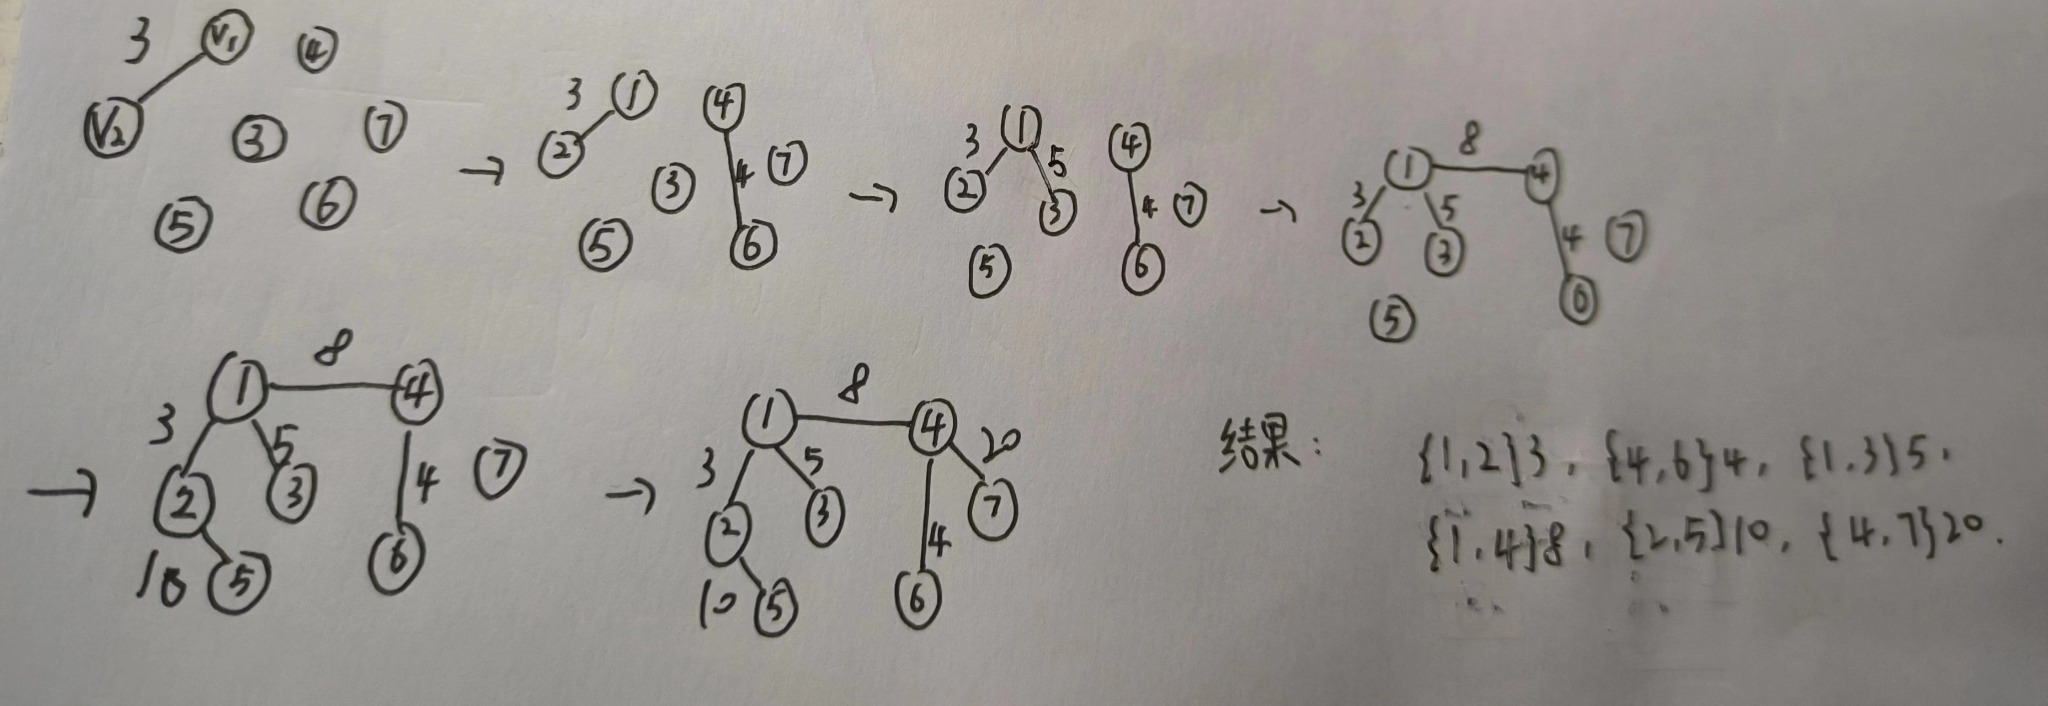 3 V1 4
V2 3 7
5 6
→
3 1 4
2 3 4 7
5 6
→
3 1 5 4
2 3 4 7
5 6
→
1 8 4
3 5 4 7
2 3
5 6
→
1 8 4
3 5 4 7
2 3
10 5 6
→
1 8 4
3 5 20
2 3 4 7
10 5 6
结果: {1,2}3, {4,6}4, {1.3}5,
{1,4}8, {2,5}10, {4,7}20.